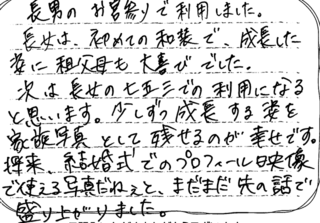 長男のお宮参りで利用しました。
長女は、初めての和装で、成長した
姿に祖父母も大喜びでした。
次は長女の七五三での利用になる
と思います。少しずつ成長する姿を
家族写真として残せるのが幸せです。
将来、結婚式でのプロフィール映像
で使える写真だねぇと、まだまだ先の話で
盛り上がりました。